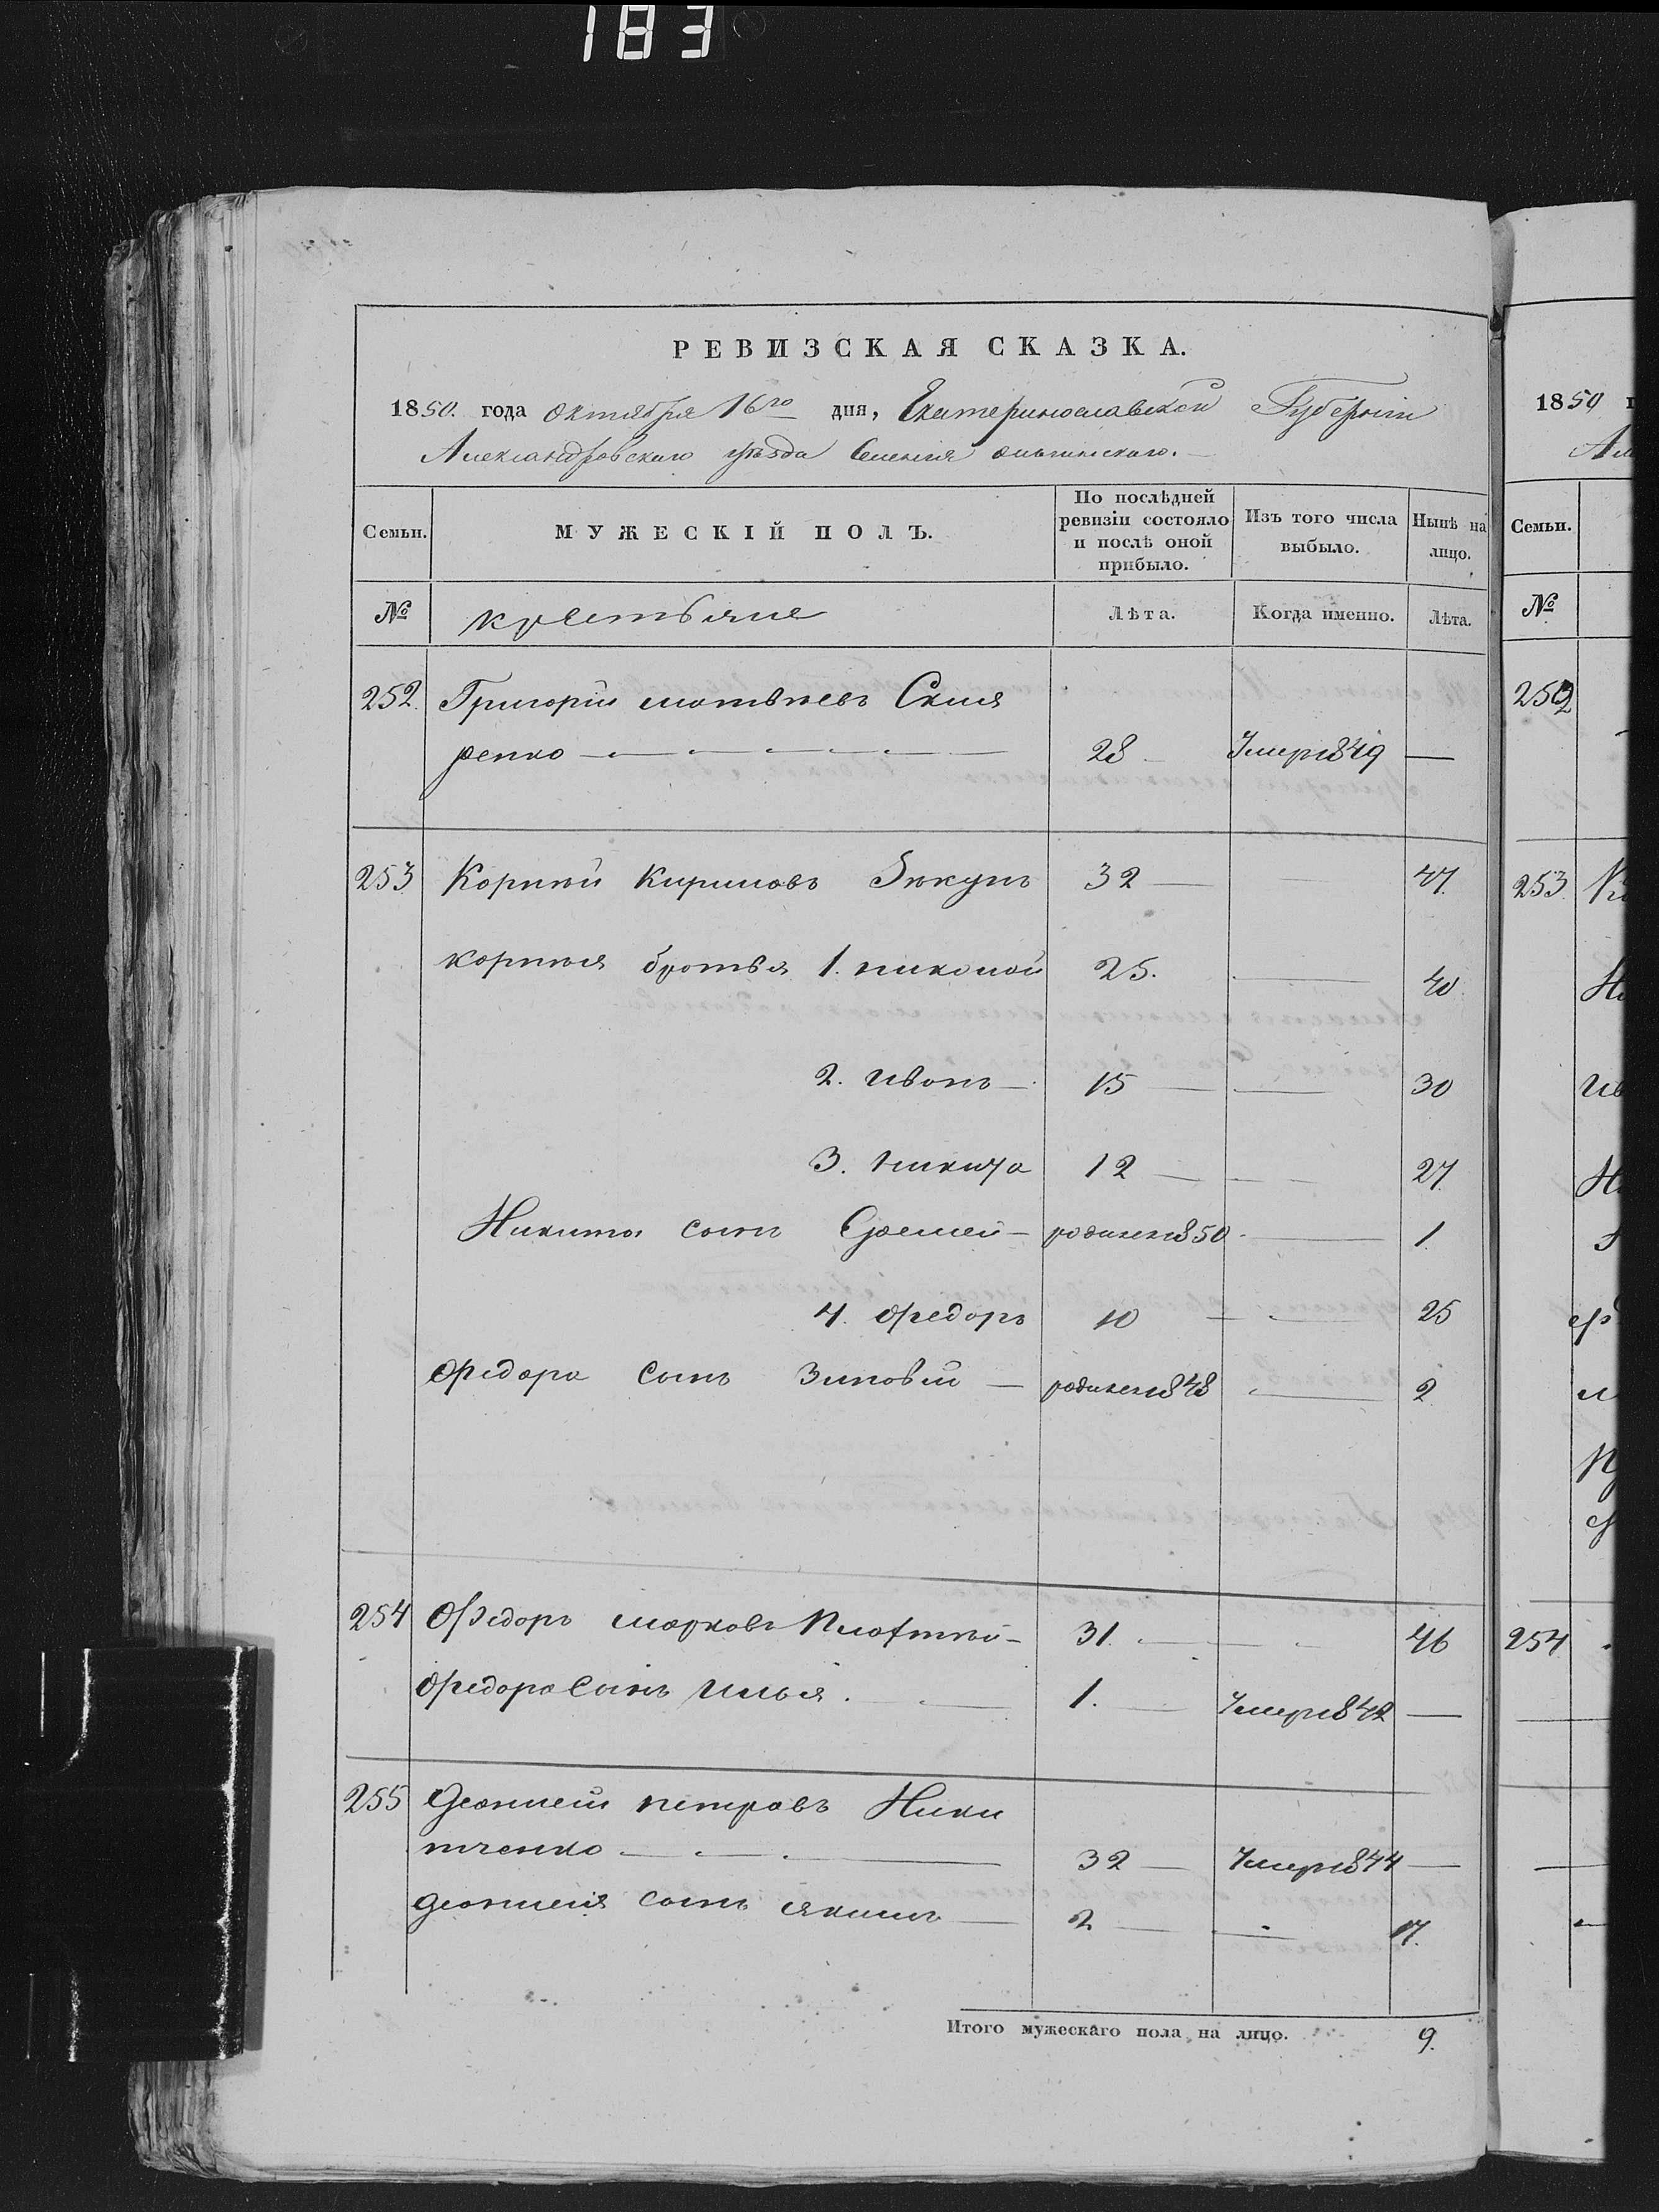 183
РЕВИЗСКАЯ СКАЗКА.
1850. года октября 16го дня, Екатеринославской Губернии
Александровского уѣзда Селения
Семьи. МУЖЕСКІЙ ПОЛЪ. По послѣдней ревизіи состояло и послѣ оной прибыло. Изъ того числа выбыло. Нынѣ на лицо.
№ крестьяне Лѣта. Когда именно. Лѣта.
252. Григорій матвѣевъ Скля
ренко 28 Умеръ 1849 —
253 Корнѣй Кириловъ 32 — 47.
корнѣя братья 1. николай 25. — 40
2. иванъ — 15 — 30
3. никита 12 — 27
Никиты сынъ Еремей — родился 1850 — 1.
4. Федоръ 10 — 25
Федора сынъ Зиновій — родился 1848 — 2
254 Федоръ марковъ 31. — 46
Федора сынъ Илья. 1. — Умеръ 1842 —
255 петровъ Ники
тченко 32 — Умеръ 1844 —
сынъ якимъ — 2 — 17.
Итого мужескаго пола на лицо. 9.
1850 г
Ал
Семьи.
№
252
253
254